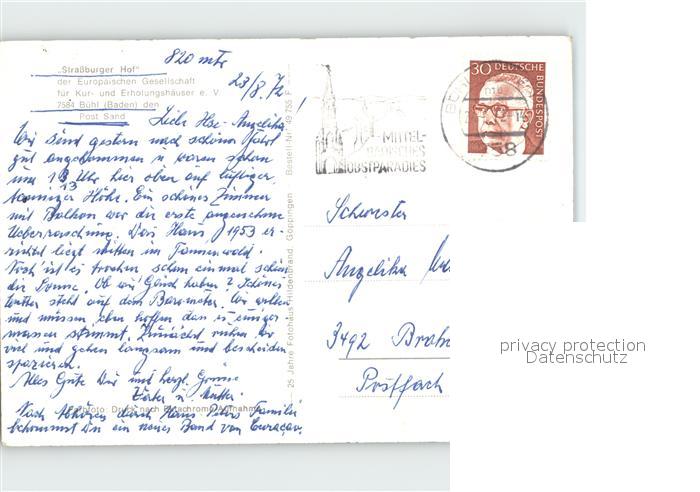 820 mtr
"Straßburger Hof"
der Europäischen Gesellschaft
für Kur- und Erholungshäuser e. V.
7584 Bühl (Baden) den 23/8.72
Post Sand
Liebe Ilse-Angelika!
Wir sind gestern nach schöner Fahrt
gut angekommen u waren schon
um 13 Uhr hier oben auf luftiger,
Höhe. Ein schönes Zimmer
mit Balkon war die erste angenehme
Ueberraschung. Das Haus, 1953 er-
richtet liegt mitten im Tannenwald.
Noch ist es trocken, schon einmal schien
die Sonne. Ob wir Glück haben? Schönes
Wetter steht auf dem Barometer. Wir wollen
und müssen eben hoffen das es einiger
massen stimmt. Zunächst ruhen wir
viel und gehen langsam und bescheiden
spazieren.
Alles Gute Dir und herzl. Grüsse
Vater u. Mutter.
Farbfoto: Druck nach Ektachrome-Aufnahme
Nach durch Hans Peters Familie
bekommst Du ein neues Band von Curaçao.
25 Jahre Fotohaus Hildenbrand, Göppingen
Bestell-Nr. 49 755
MITTEL-
BADISCHES
OBSTPARADIES
30 DEUTSCHE
BUNDESPOST
58
Schwester
Angelika
3492 Brak
Postfach
privacy protection
Datenschutz